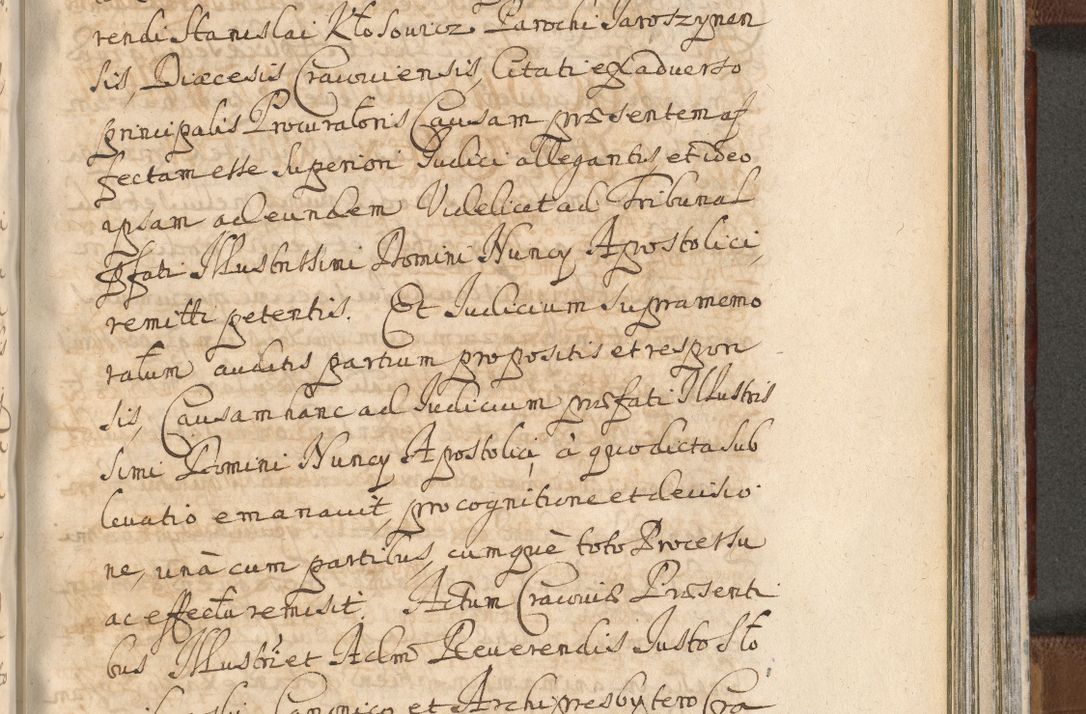 rendi Stanislai Kłosowicz Parochi Jaroszynen
sis, Diæcesis Cracoviensis, Citati ex adverso
principalis Procuratoris Causam præsentem af
fectam esse superiori Judici allegantis et ideo
ipsam ad eundem Videlicet ad Tribunal
pfati Illustrissimi Domini Nuncÿ Apostolici,
remitti petentis. Et Judicium supramemo
ratum auditis partium propositis et respon
sis, Causam hanc ad Judicium præfati Illustris
simi Domini Nuncÿ Apostolici, à quo dicta sub
levatio emanavit, pro cognitione et decisio
ne, unà cum partibus, cumquè toto Processu
ac effectu remisit. Actum Cracoviæ Præsenti
bus Illustri et Adm Reverendis Justo Sło
Canonico et Archipresbytero Cra